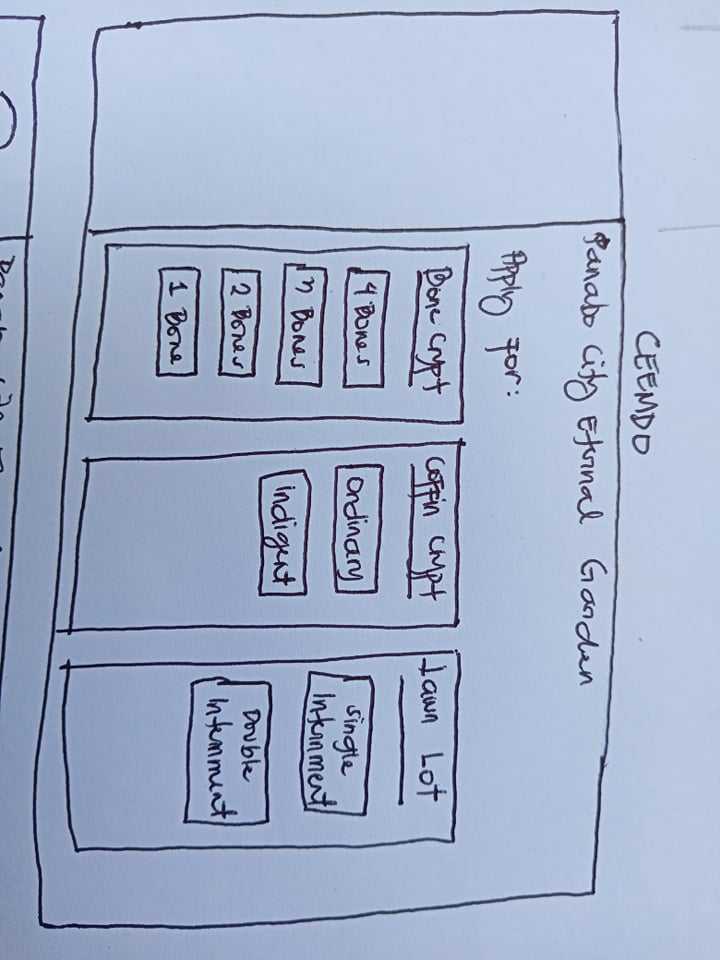 CEEMDO
Panabo City Eternal Garden
Apply For:
Bone Crypt
4 Bones
3 Bones
2 Bones
1 Bone
Coffin Crypt
Ordinary
indigent
Lawn Lot
Single
Internment
Double
Internment
Panabo City